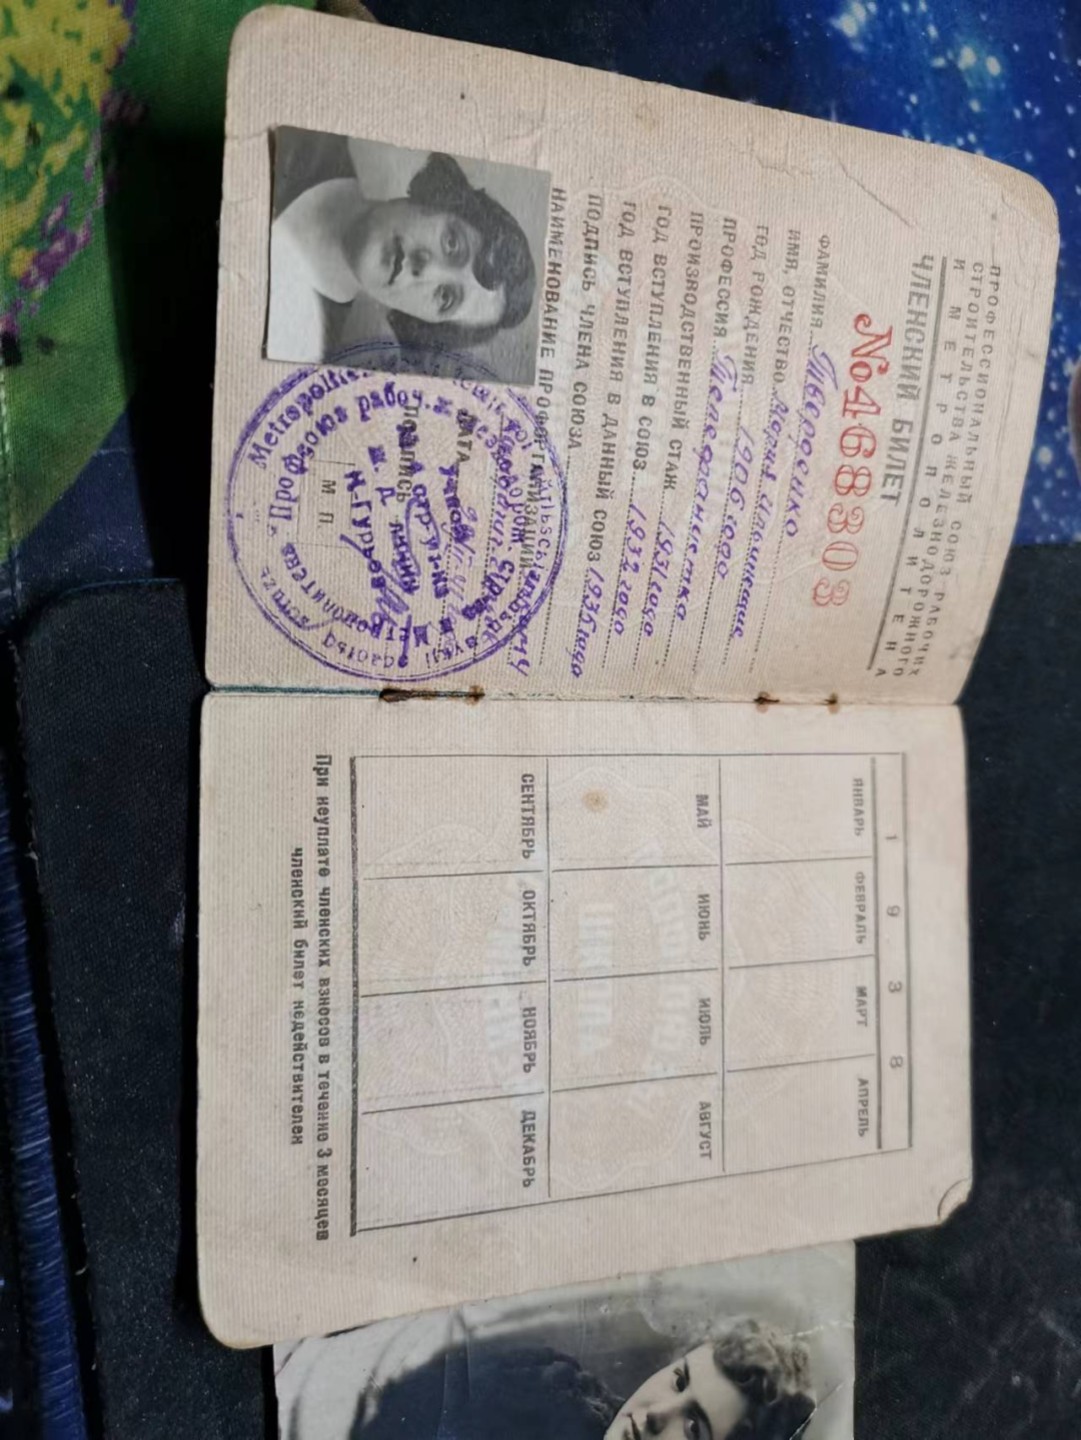 ПРОФЕССИОНАЛЬНЫЙ СОЮЗ РАБОЧИХ
СТРОИТЕЛЬСТВА ЖЕЛЕЗНОДОРОЖНОГО
И МЕТРОПОЛИТЕНА
ЧЛЕНСКИЙ БИЛЕТ
№468303
ФАМИЛИЯ
ИМЯ, ОТЧЕСТВО Мария
ГОД РОЖДЕНИЯ 1906 года
ПРОФЕССИЯ Телефонистка
ПРОИЗВОДСТВЕННЫЙ СТАЖ 1931 года
ГОД ВСТУПЛЕНИЯ В СОЮЗ 1932 года
ГОД ВСТУПЛЕНИЯ В ДАННЫЙ СОЮЗ 1935 года
ПОДПИСЬ ЧЛЕНА СОЮЗА
НАИМЕНОВАНИЕ ПРОФОРГАНИЗАЦИИ
ДАТА
ПОДПИСЬ
М П.
1938
ЯНВАРЬ ФЕВРАЛЬ МАРТ АПРЕЛЬ
МАЙ ИЮНЬ ИЮЛЬ АВГУСТ
СЕНТЯБРЬ ОКТЯБРЬ НОЯБРЬ ДЕКАБРЬ
При неуплате членских взносов в течение 3 месяцев
членский билет недействителен